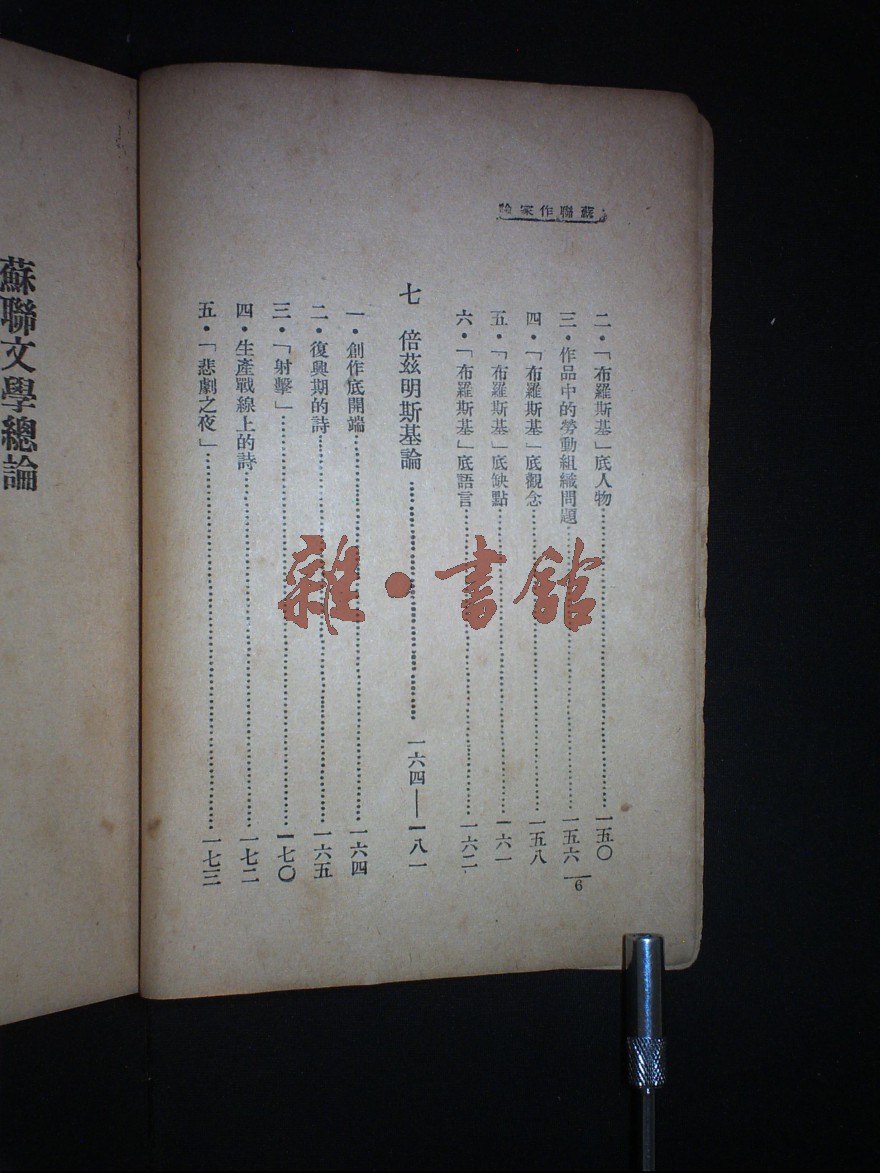 蘇聯作家論
二・「布羅斯基」底人物……一五〇
三・作品中的勞動組織問題……一五六
四・「布羅斯基」底觀念……一五八
五・「布羅斯基」底缺點……一六一
六・「布羅斯基」底語言……一六二
七 倍茲明斯基論……一六四——一八一
一・創作底開端……一六四
二・復興期的詩……一六五
三・「射擊」……一七〇
四・生產戰線上的詩……一七二
五・「悲劇之夜」……一七三
6
蘇聯文學總論
雜・書館